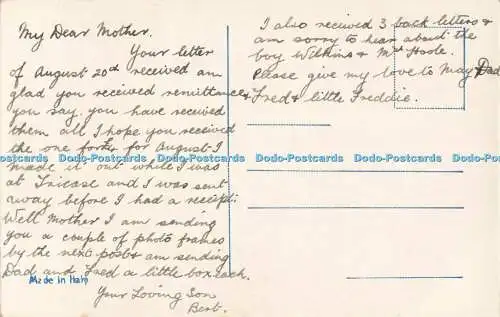 My Dear Mother.
Your letter
of August 20th received am
glad you received remittance
you say. you have received
them all I hope you received
the one for August I
made it out while I was
at Tricase and I was sent
away before I had a receipt:
Well Mother I am sending
you a couple of photo frames
by the next post & am sending
Dad and Fred a little box each.
Your Loving Son
Bert.
Made in Italy
I also received 3 back letters &
am sorry to hear about the
boy Wilkins & Mr Hoole.
Please give my love to May Dad
& Fred & little Freddie.
Dodo-Postcards Dodo-Postcards Dodo-Postcards Dodo-Postcards Dodo-Postcards Dodo-Postcards